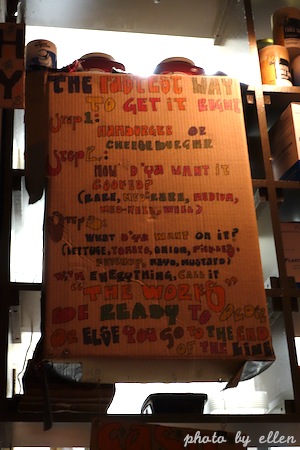 THE FASTEST WAY
TO GET IT RIGHT
STEP 1:
HAMBURGER OR
CHEESEBURGER
STEP 2:
HOW D'YA WANT IT
COOKED?
(RARE, MED-RARE, MEDIUM,
MED-WELL, WELL)
STEP 3:
WHAT D'YA WANT ON IT?
(LETTUCE, TOMATO, ONION, PICKLES,
KETCHUP, MAYO, MUSTARD)
WITH EVERYTHING, CALL IT
"THE WORKS"
BE READY TO ORDER
OR ELSE YOU GO TO THE END
OF THE LINE
photo by ellen